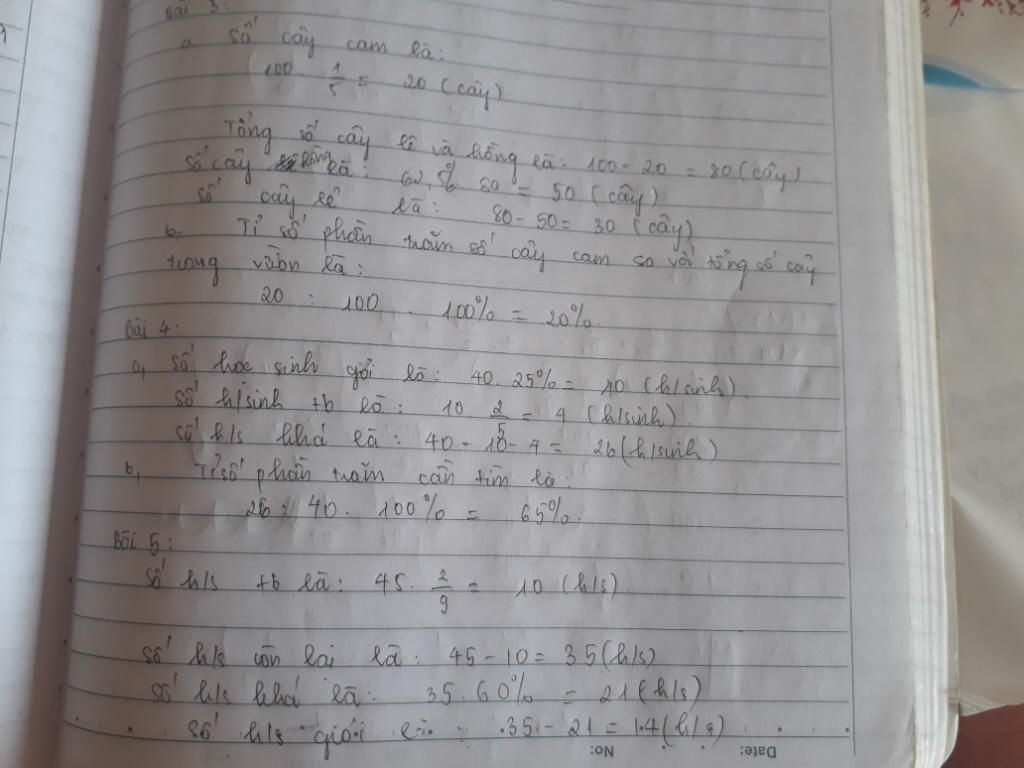 Bài 3:
a Số cây cam là:
100 . 1/5 = 20 (cây)
Tổng số cây lê và hồng là: 100 - 20 = 80 (cây)
Số cây hồng là: 62,5% 80 = 50 (cây)
Số cây lê là: 80 - 50 = 30 (cây)
b, Tỉ số phần trăm số cây cam so với tổng số cây
trong vườn là:
20 : 100 . 100% = 20%.
Bài 4:
a, Số học sinh giỏi là: 40. 25% = 10 (h/sinh).
Số h/sinh tb là: 10 2/5 = 4 (h/sinh).
Số h/s khá là: 40 - 10 - 4 = 26 (h/sinh)
b, Tỉ số phần trăm cần tìm là:
26 : 40. 100% = 65%.
Bài 5:
Số h/s tb là: 45. 2/9 = 10 (h/s).
Số h/s còn lại là: 45 - 10 = 35 (h/s)
Số h/s khá là: 35.60% = 21 (h/s)
Số h/s giỏi là: 35 - 21 = 14 (h/s)
No: Date: